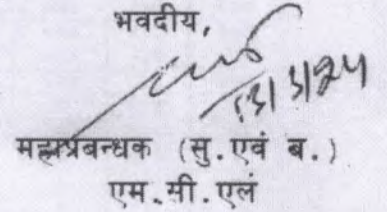 भवदीय,
13/3/24
महाप्रबन्धक (सु.एवं ब.)
एम.सी.एल